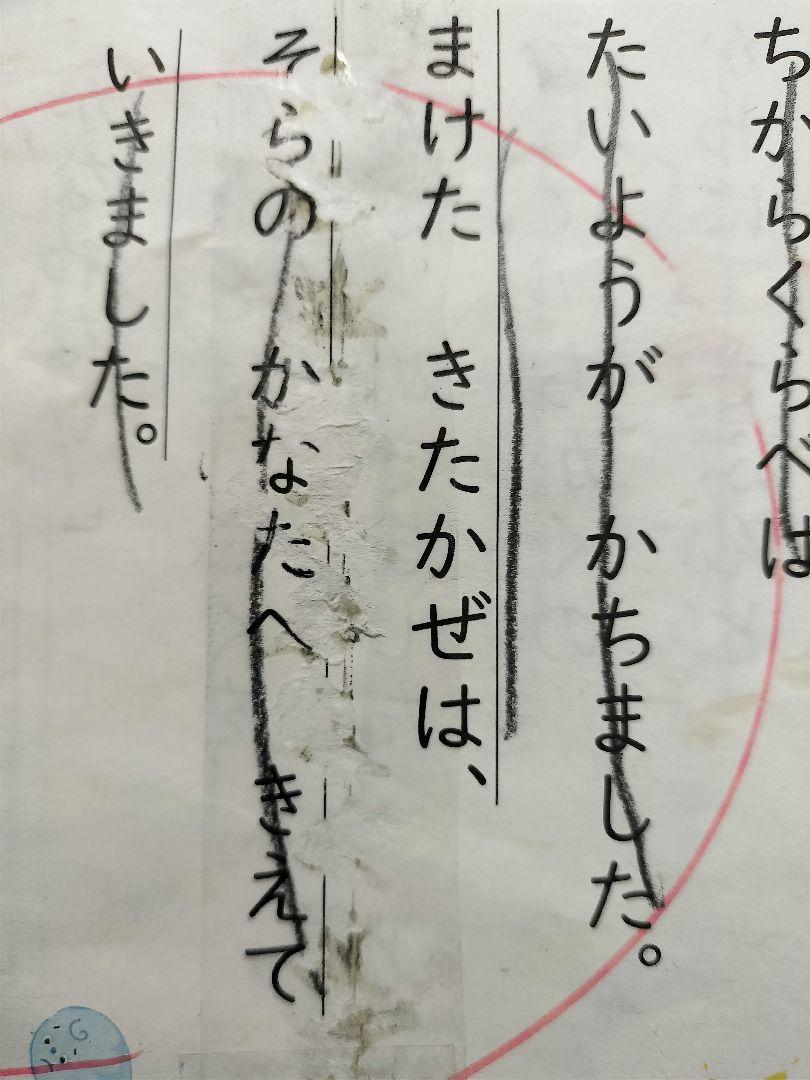 ちからくらべは
たいようが かちました。
まけた きたかぜは、
そらの かなたへ きえて
いきました。